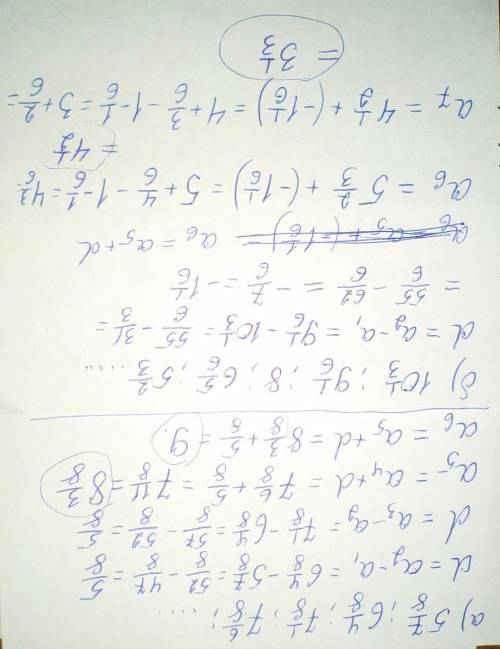 а) 5 7/8 ; 6 4/8 ; 7 1/8 ; 7 6/8 ; ....
d = a₂ - a₁ = 6 4/8 - 5 7/8 = 52/8 - 47/8 = 5/8
d = a₃ - a₂ = 7 1/8 - 6 4/8 = 57/8 - 52/8 = 5/8
a₅ = a₄ + d = 7 6/8 + 5/8 = 7 11/8 = 8 3/8
a₆ = a₅ + d = 8 3/8 + 5/8 = 9.
б) 10 1/3 ; 9 1/6 ; 8 ; 6 5/6 ; 5 2/3 .....
d = a₂ - a₁ = 9 1/6 - 10 1/3 = 55/6 - 31/3 =
= 55/6 - 62/6 = - 7/6 = - 1 1/6
a₆ = a₅ + (-1 1/6) a₆ = a₅ + d
a₆ = 5 2/3 + (-1 1/6) = 5 + 4/6 - 1 - 1/6 = 4 3/6 =
= 4 1/2
a₇ = 4 1/2 + (-1 1/6) = 4 + 3/6 - 1 - 1/6 = 3 + 2/6 =
= 3 1/3